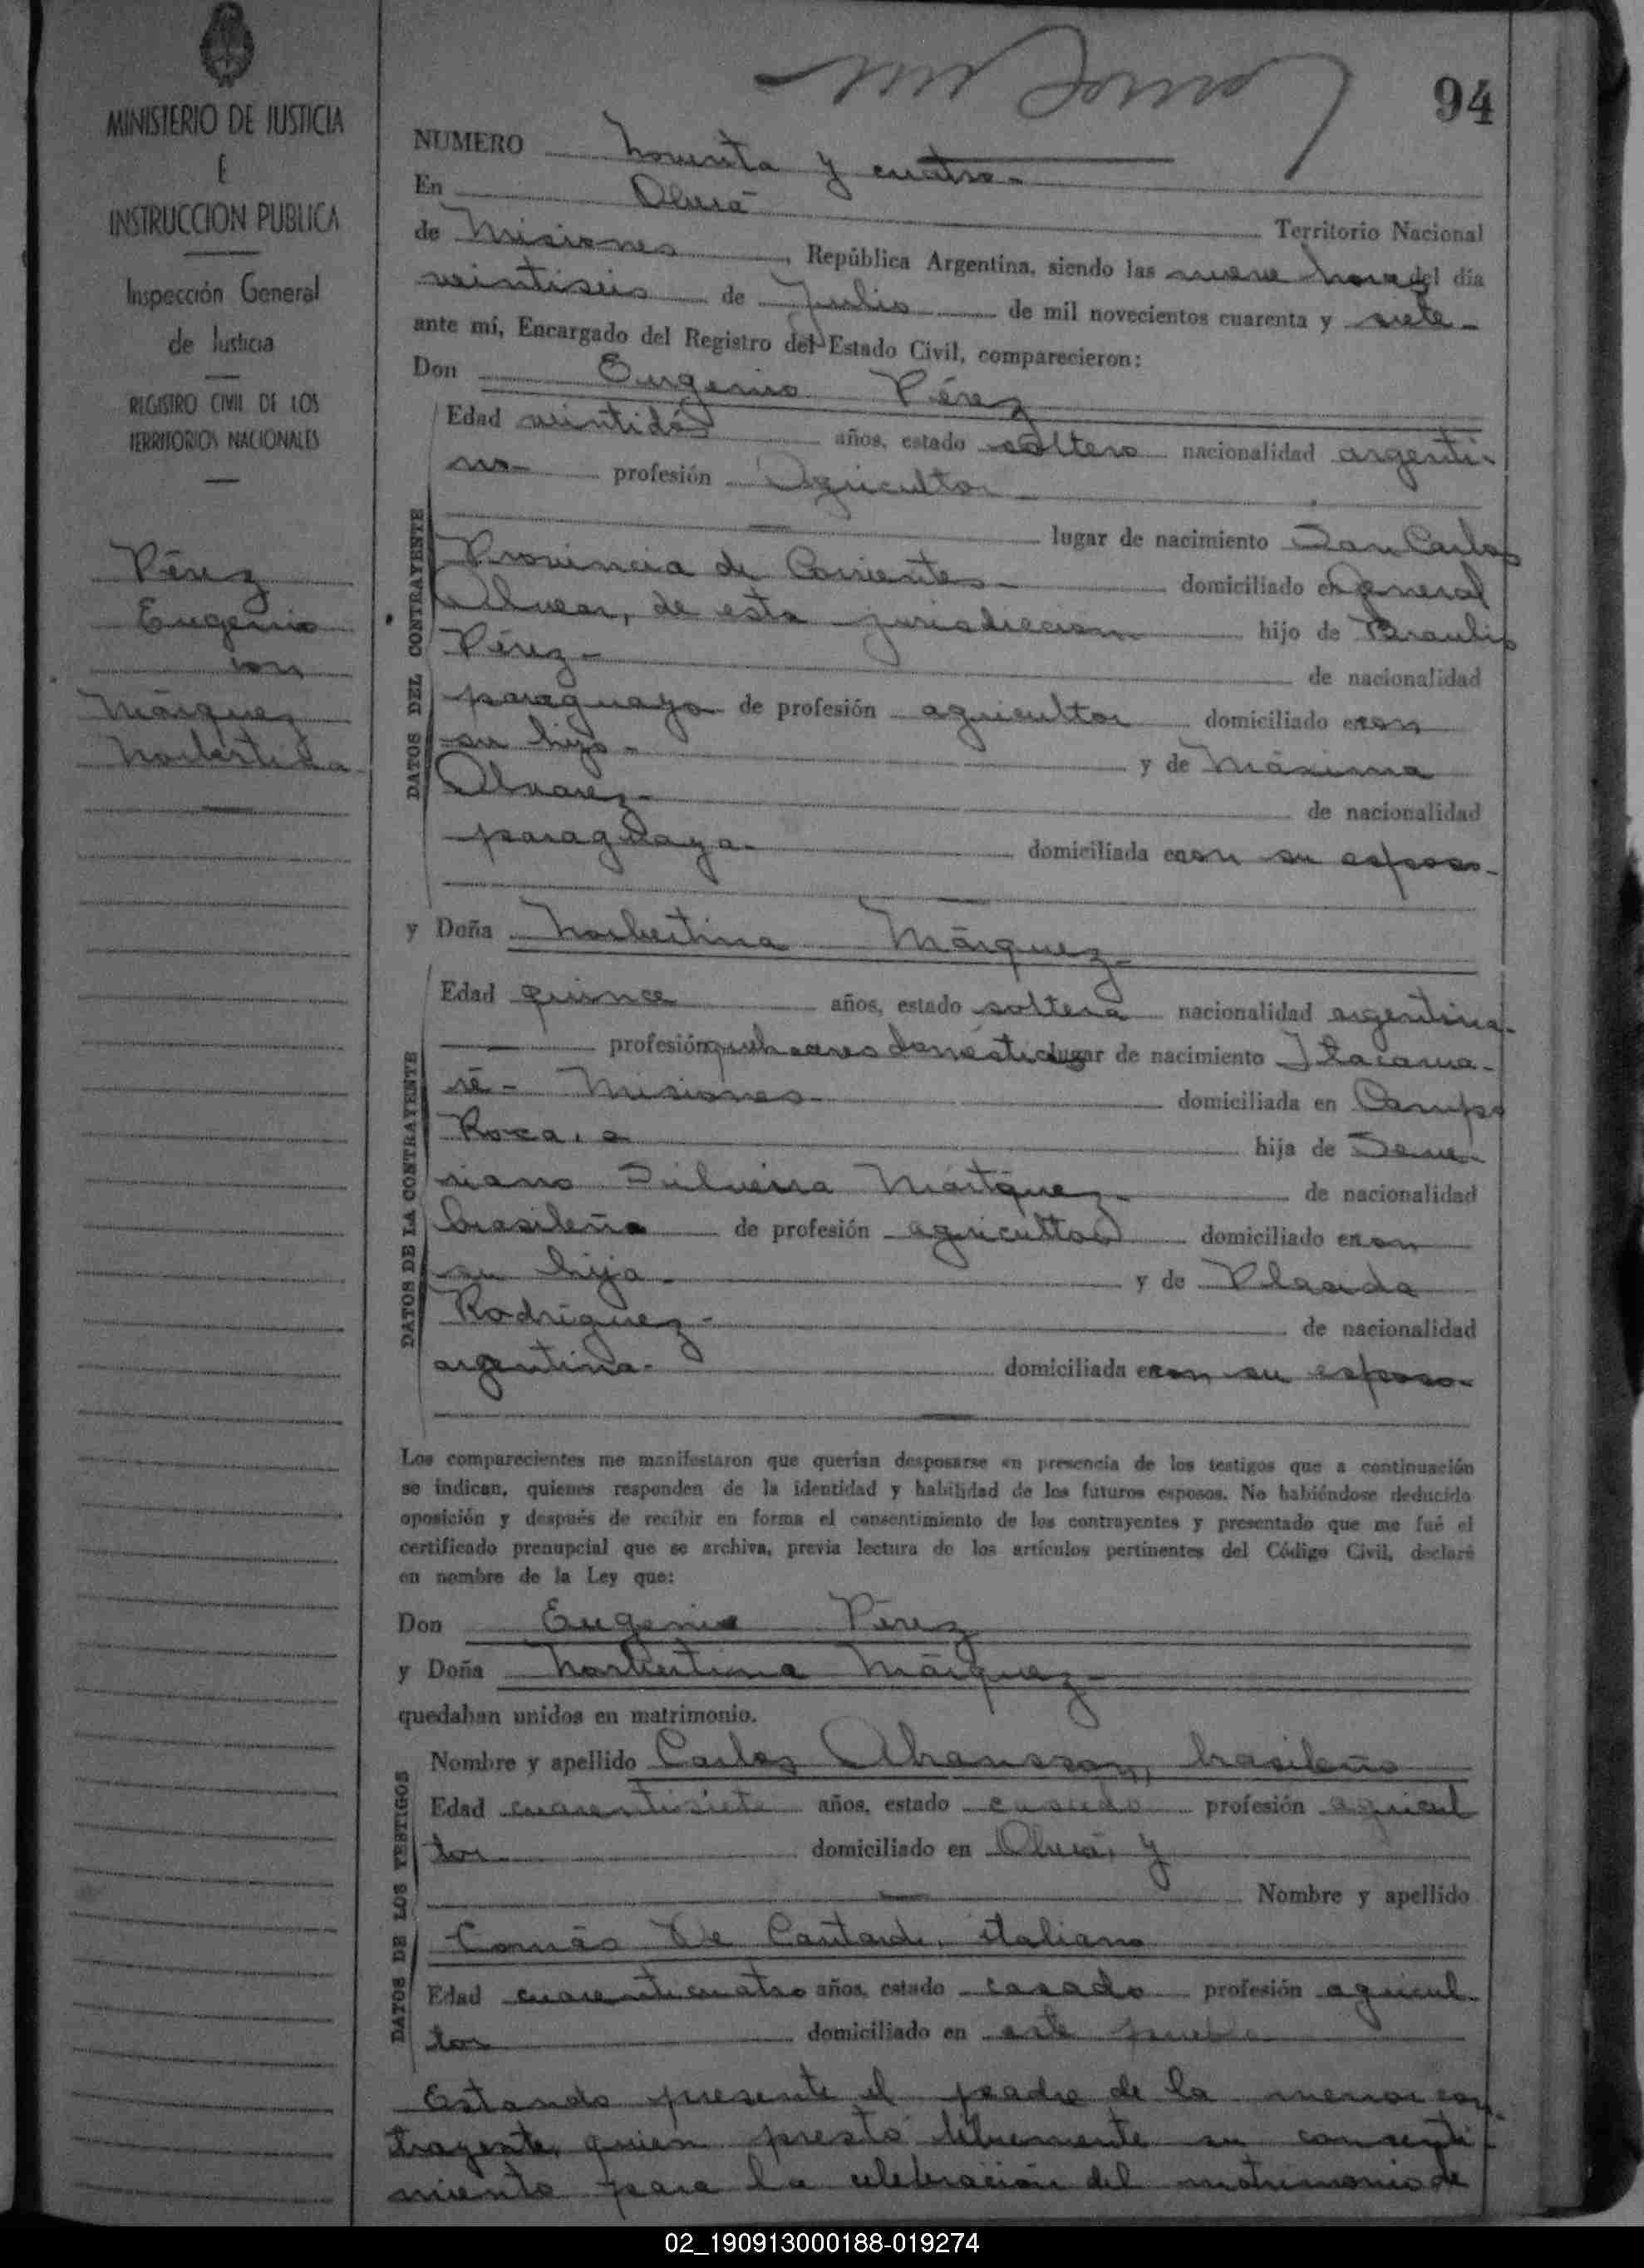 94
MINISTERIO DE JUSTICIA
E
INSTRUCCION PUBLICA
Inspección General
de Justicia
REGISTRO CIVIL DE LOS
TERRITORIOS NACIONALES
Pérez
Eugenio
con
Márquez
Norbertina
NUMERO Noventa y cuatro-
En Oberá Territorio Nacional
de Misiones, República Argentina, siendo las nueve horas del día
veintiseis de Julio de mil novecientos cuarenta y siete-
ante mí, Encargado del Registro del Estado Civil, comparecieron:
Don Eugenio Pérez
DATOS DEL CONTRAYENTE
Edad veintidós años, estado soltero nacionalidad argenti-
no- profesión Agricultor
lugar de nacimiento San Carlos
Provincia de Corrientes- domiciliado en General
Alvear, de esta jurisdiccion hijo de Braulio
Pérez- de nacionalidad
paraguayo de profesión agricultor domiciliado en con
su hijo- y de Máxima
Alvarez- de nacionalidad
paraguaya- domiciliada en con su esposo-
y Doña Norbertina Márquez-
DATOS DE LA CONTRAYENTE
Edad quince años, estado soltera nacionalidad argentina-
profesión quehaceres domésticos lugar de nacimiento Itacarua-
ré- Misiones domiciliada en Campo
Roca, hija de Seve-
riano Silveira Márquez- de nacionalidad
brasileña de profesión agricultor domiciliado en con
su hija- y de Placida
Rodríguez- de nacionalidad
argentina- domiciliada en con su esposo-
Los comparecientes me manifestaron que querían desposarse en presencia de los testigos que a continuación
se indican, quienes responden de la identidad y habilidad de los futuros esposos. No habiéndose deducido
oposición y después de recibir en forma el consentimiento de los contrayentes y presentado que me fué el
certificado prenupcial que se archiva, previa lectura de los artículos pertinentes del Código Civil, declaré
en nombre de la Ley que:
Don Eugenio Pérez
y Doña Norbertina Márquez-
quedaban unidos en matrimonio.
DATOS DE LOS TESTIGOS
Nombre y apellido Carlos brasileño
Edad cuarentisiete años, estado casado profesión agricul
tor domiciliado en Oberá, y
Nombre y apellido
Tomás De italiano
Edad cuarenticuatro años, estado casado profesión agricul-
tor domiciliado en este pueblo
Estando presente el padre de la menor con-
trayente, quien prestó libremente su consenti-
miento para la celebración del matrimonio de
02_190913000188-019274